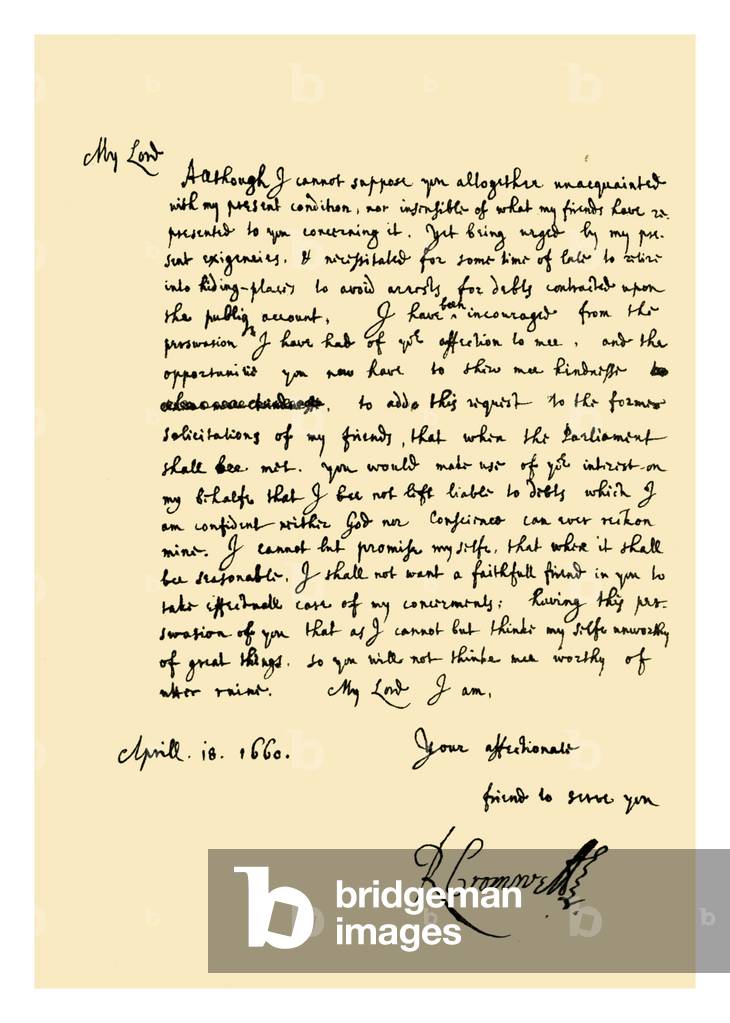 My Lord
Allthough I cannot suppose you alltogether unacquainted
with my present condition, nor insensible of what my friends have re-
presented to you concerning it. Yet being urged by my pre-
sent exigencies, & necessitated for some time of late to retire
into hiding-places to avoid arrests for debts contracted upon
the publiq account, I have been incouraged from the
perswasion I have had of yor affection to mee, and the
opportunitie you now have to shew mee kindnesse
to adde this request to the former
solicitations of my friends, that when the Parliament
shall bee met. you would make use of yor interest on
my behalfe that I bee not left liable to debts which I
am confident neither God nor Conscience can ever reckon
mine. I cannot but promise my selfe, that when it shall
bee seasonable, I shall not want a faithfull friend in you to
take effectuall care of my concernments; having this per-
swasion of you that as I cannot but thinke my selfe unworthy
of great things. so you will not thinke mee worthy of
utter ruine. My Lord I am,
Aprill. 18. 1660. Your affectionate
friend to serve you
R Cromwell
b bridgeman
images